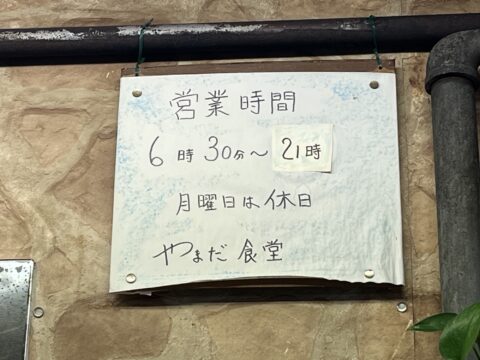 営業時間
6時30分〜21時
月曜日は休日
やまだ食堂